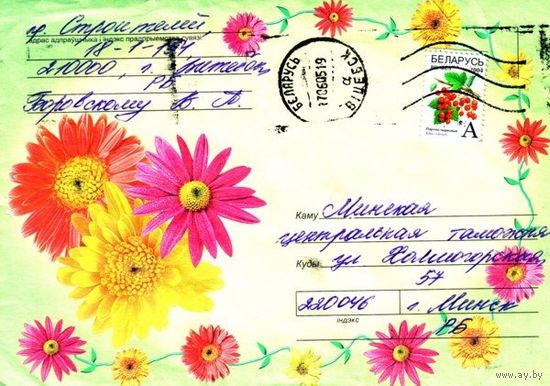 пр. Строителей,
адрас адпраўшчыка і індэкс прадпрыемства сувязі
18-1-191
210000, г. Витебск,
РБ
Боровскому В. А.
БЕЛАРУСЬ
ВІЦЕБСК
17060519
БЕЛАРУСЬ
2004
A
Каму Минская
центральная таможня
Куды ул Холмогорская,
57
220046 г. Минск
індэкс РБ
www.ay.by